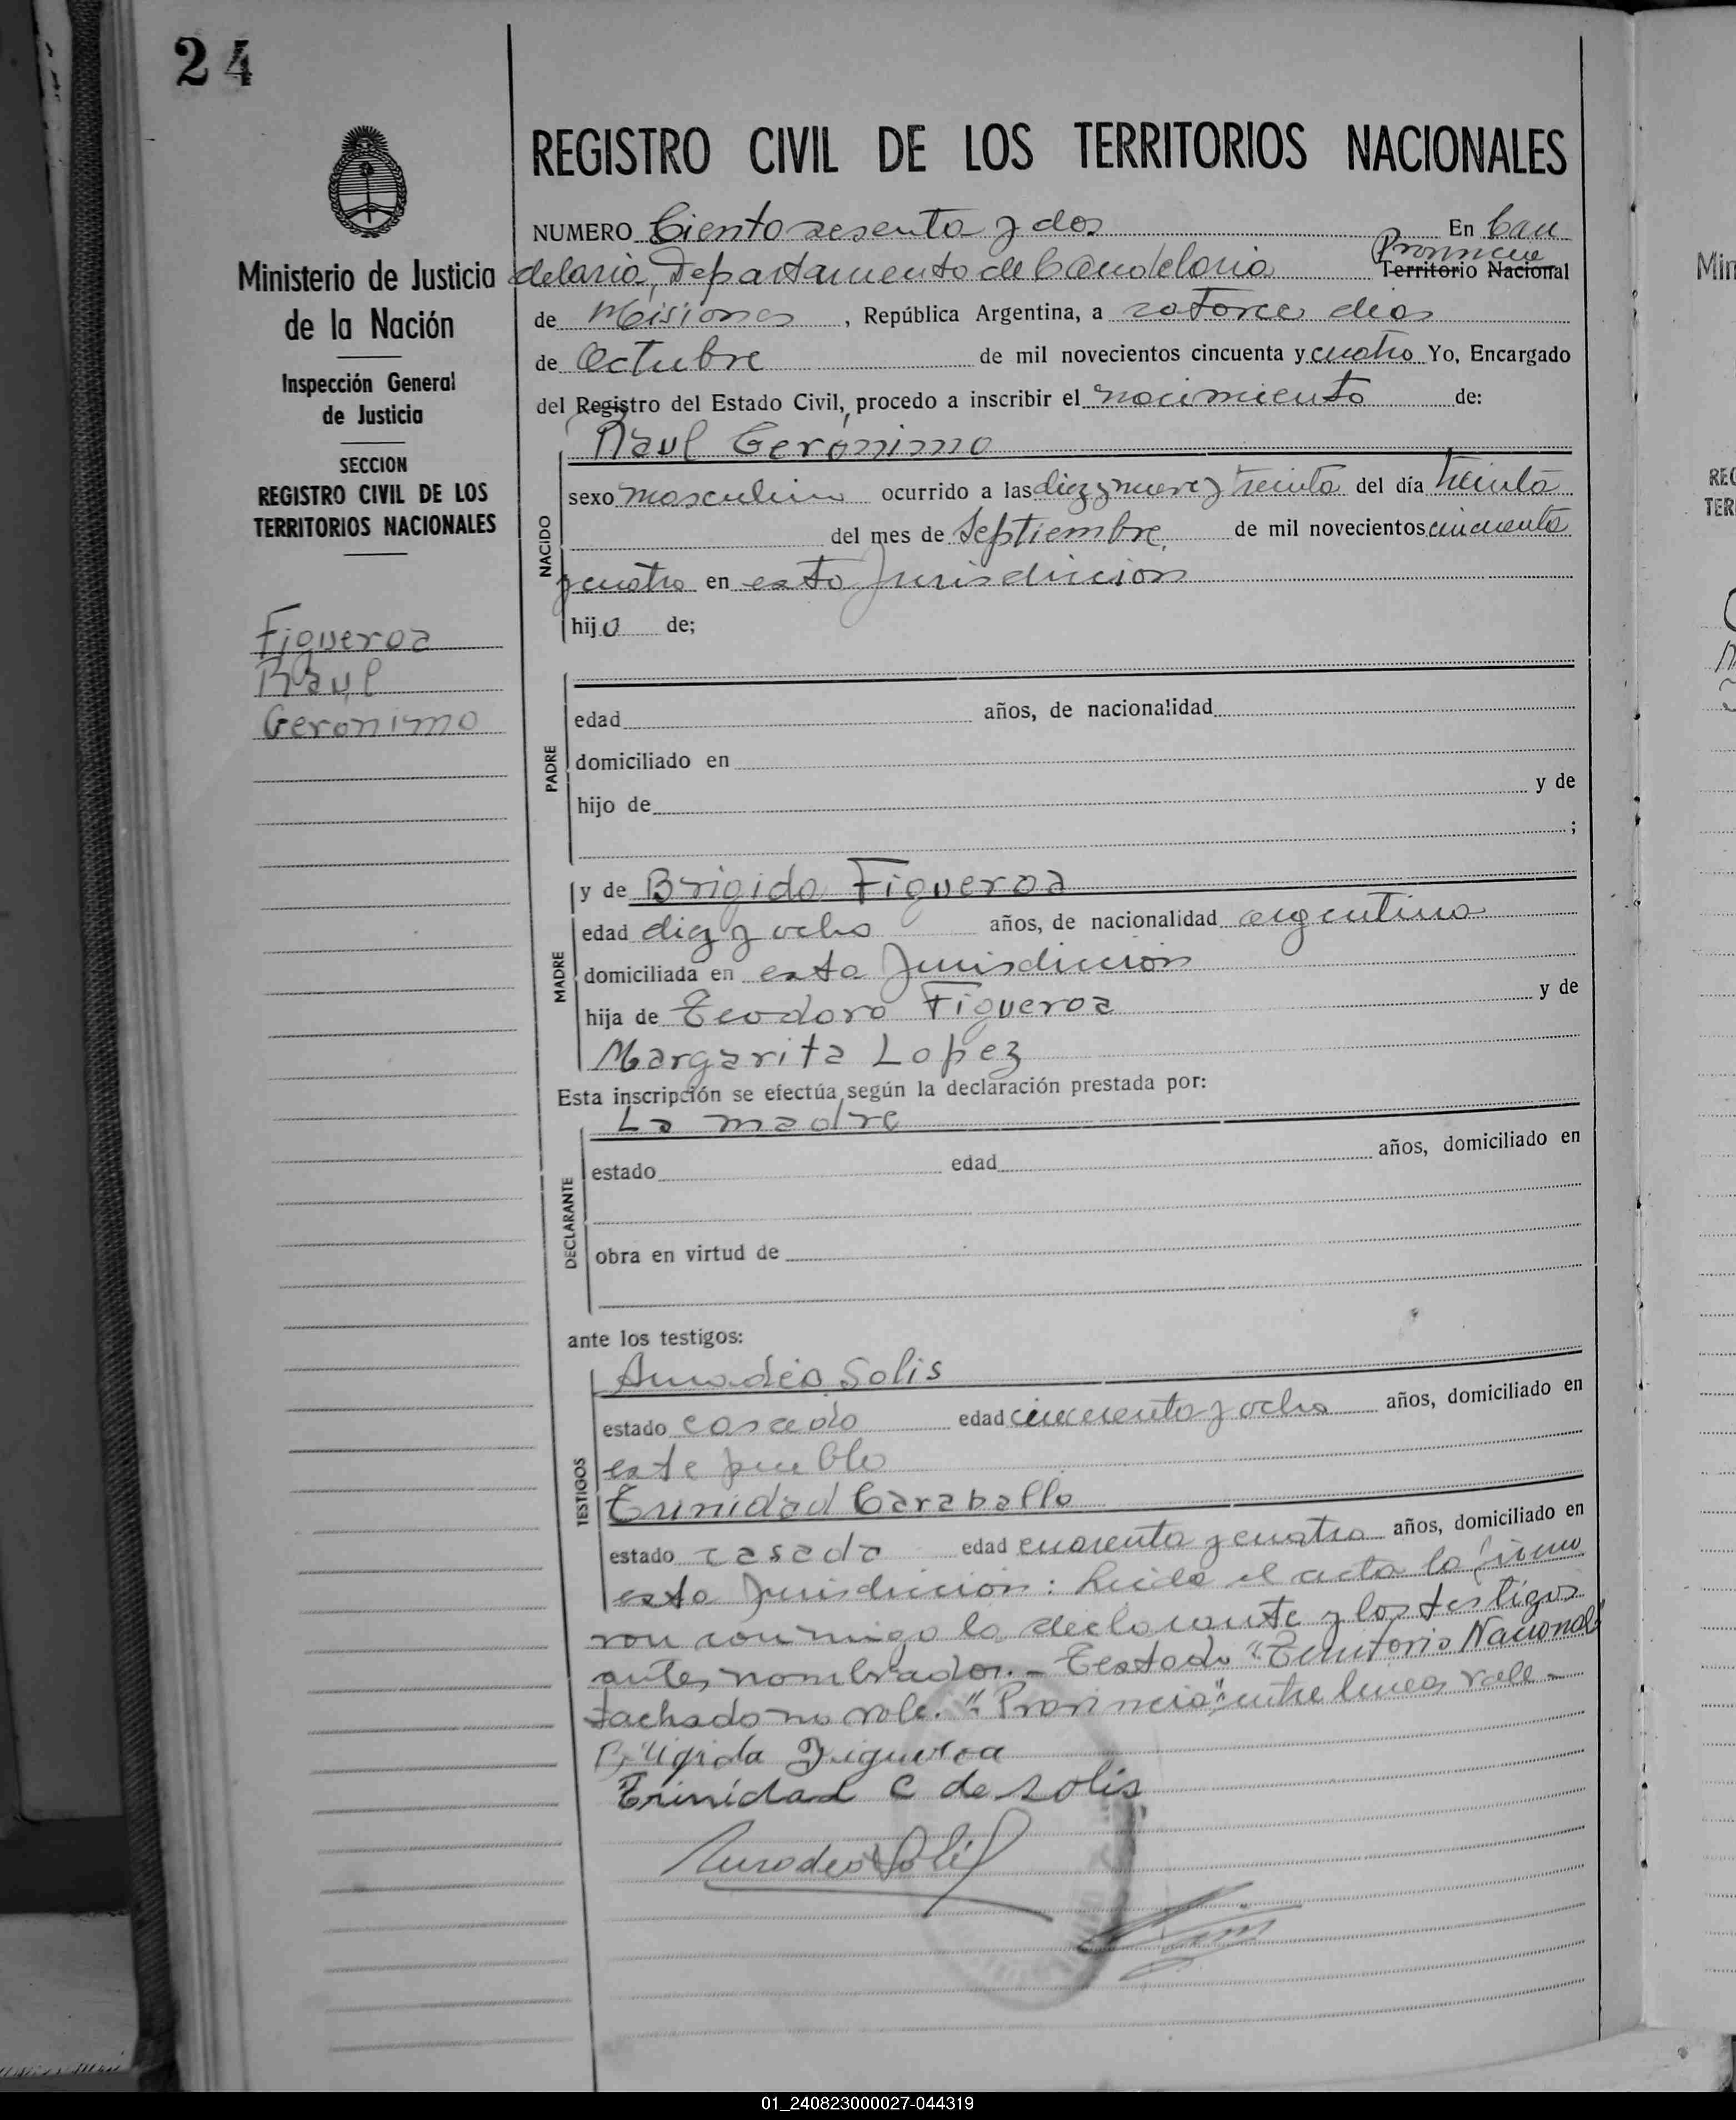 24
REGISTRO CIVIL DE LOS TERRITORIOS NACIONALES
Ministerio de Justicia
de la Nación
Inspección General
de Justicia
SECCION
REGISTRO CIVIL DE LOS
TERRITORIOS NACIONALES
Figueroa
Raul
Geronimo
NUMERO Ciento sesenta y dos En Can
delaria, Departamento de Candelaria Provincia Territorio Nacional
de Misiones, República Argentina, a catorce dias
de Octubre de mil novecientos cincuenta y cuatro Yo, Encargado
del Registro del Estado Civil, procedo a inscribir el nacimiento de:
Raul Gerónimo
NACIDO
sexo masculino ocurrido a las diez y nueve y treinta del día treinta
del mes de Septiembre de mil novecientos cincuenta
y cuatro en esta Jurisdiccion
hijo de;
PADRE
edad años, de nacionalidad
domiciliado en
hijo de y de
;
y de Brigida Figueroa
MADRE
edad diez y ocho años, de nacionalidad argentina
domiciliada en esta Jurisdiccion
hija de Teodoro Figueroa y de
Margarita Lopez
Esta inscripción se efectúa según la declaración prestada por:
La madre
DECLARANTE
estado edad años, domiciliado en
obra en virtud de
ante los testigos:
TESTIGOS
Amadeo Solis
estado casado edad cincuenta y ocho años, domiciliado en
este pueblo
Trinidad Caraballo
estado casada edad cuarenta y cuatro años, domiciliado en
esta Jurisdiccion: Leida el acta la firma
ron conmigo la declarante y los testigos
antes nombrados.- Testado "Territorio Nacional"
tachado no vale. "Provincia" entre lineas vale-
Brigida Figueroa
Trinidad C de Solis
Amadeo Solis
Min
REG
TER
01_240823000027-044319